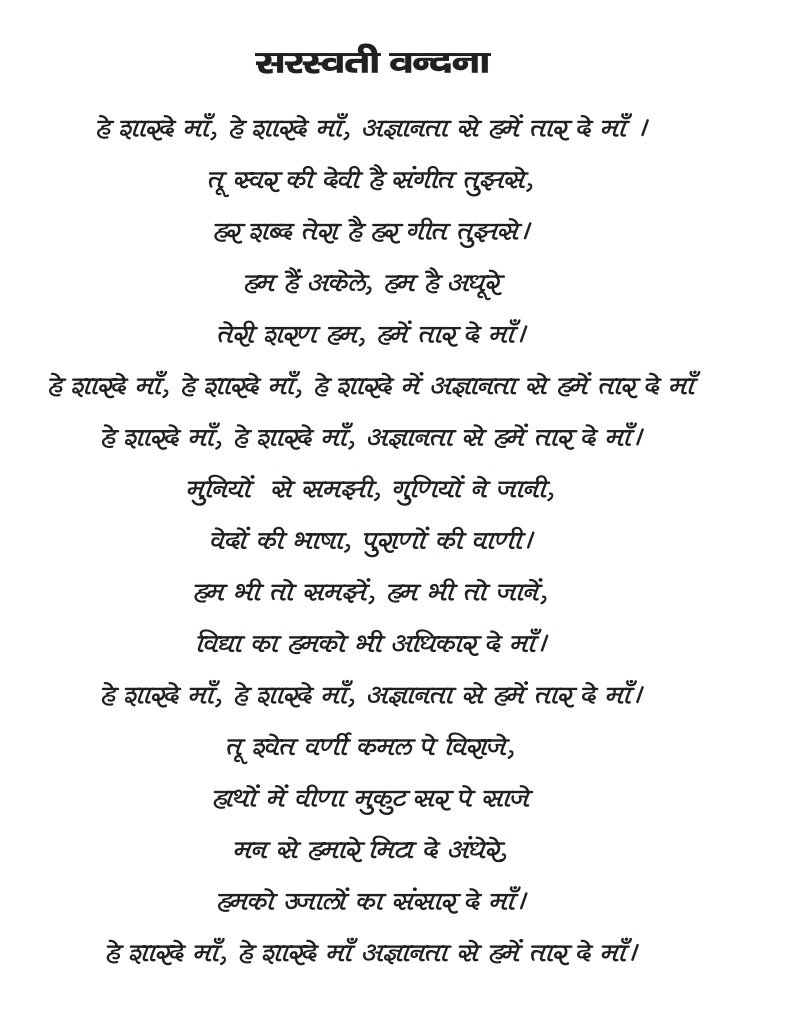 सरस्वती वन्दना
हे शारदे माँ, हे शारदे माँ, अज्ञानता से हमें तार दे माँ ।
तू स्वर की देवी है संगीत तुझसे,
हर शब्द तेरा है हर गीत तुझसे।
हम हैं अकेले, हम है अधूरे
तेरी शरण हम, हमें तार दे माँ।
हे शारदे माँ, हे शारदे माँ, हे शारदे में अज्ञानता से हमें तार दे माँ
हे शारदे माँ, हे शारदे माँ, अज्ञानता से हमें तार दे माँ।
मुनियों से समझी, गुणियों ने जानी,
वेदों की भाषा, पुराणों की वाणी।
हम भी तो समझें, हम भी तो जानें,
विद्या का हमको भी अधिकार दे माँ।
हे शारदे माँ, हे शारदे माँ, अज्ञानता से हमें तार दे माँ।
तू श्वेत वर्णी कमल पे विराजे,
हाथों में वीणा मुकुट सर पे साजे
मन से हमारे मिटा दे अंधेरे,
हमको उजालों का संसार दे माँ।
हे शारदे माँ, हे शारदे माँ अज्ञानता से हमें तार दे माँ।